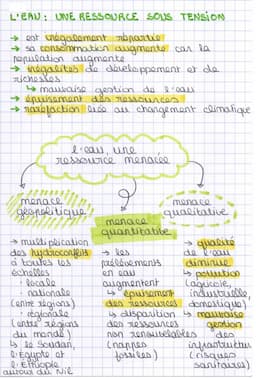 L'EAU : UNE RESSOURCE SOUS TENSION
→ est inégalement répartie
→ sa consommation augmente car la
population augmente
→ inégalités de développement et de
richesses
↳ mauvaise gestion de l'eau
→ épuisement des ressources
→ raréfaction liée au changement climatique
l'eau, une
ressource menacée
menace
géopolitique
→ multiplication
des hydroconflits
à toutes les
échelles
· locale
· nationale
(entre régions)
· régionale
(entre régions
du monde)
↳ le Soudan,
l'Egypte et
l'Ethiopie
autour du Nil
menace
quantitative
→ les
prélèvements
en eau
augmentent
↳ épuisement
des ressources
↳ disparition
des ressources
non renouvelables
(nappes
fossiles)
menace
qualitative
→ qualité
de l'eau
diminue
→ pollution
(agricole,
industrielle,
domestique)
→ mauvaise
gestion
des
infrastructures
(risques
sanitaires)